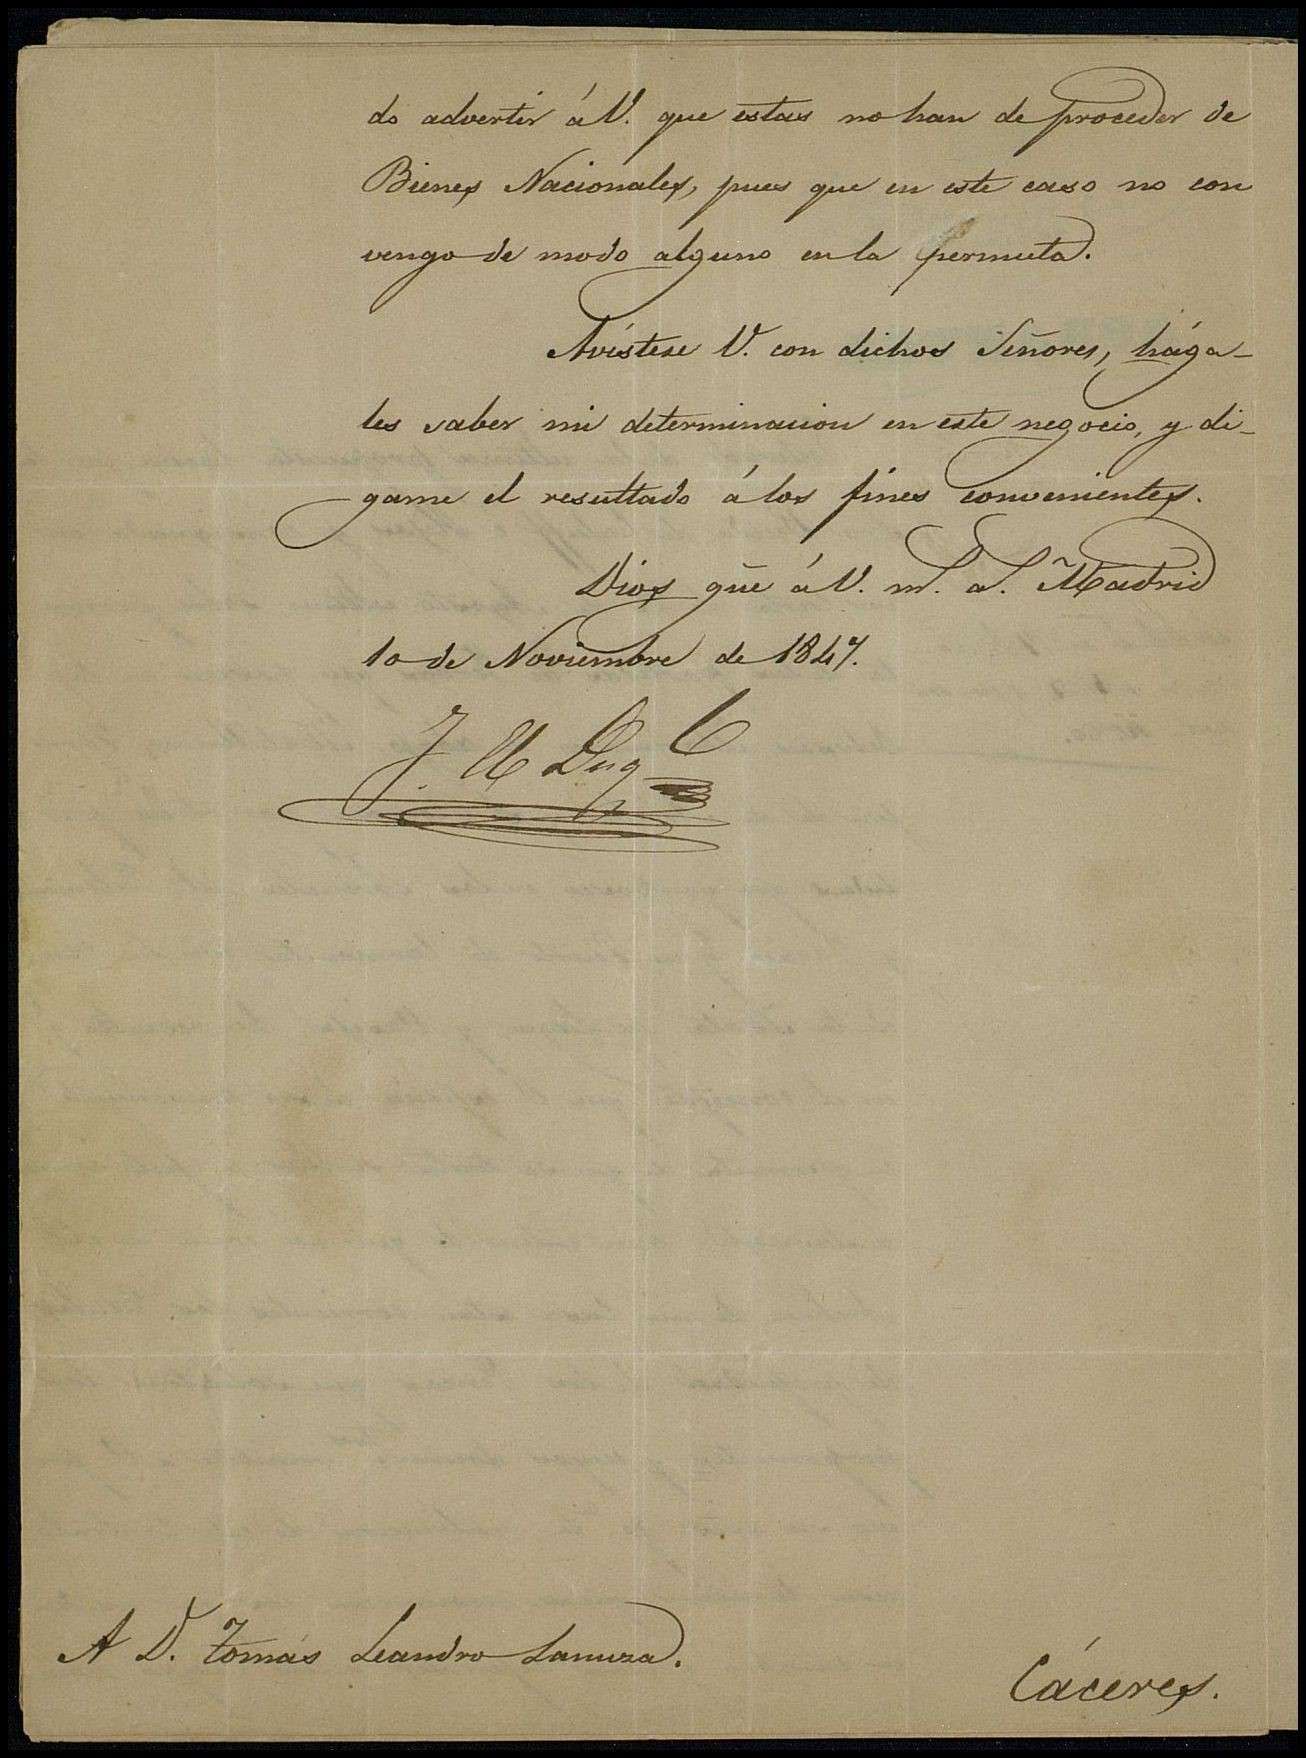 do advertir á V. que estas no han de proceder de
Bienes Nacionales, pues que en este caso no con
vengo de modo alguno en la permuta.
Avístese V. con dichos Señores, hága-
les saber mi determinacion en este negocio, y dí-
game el resultado á los fines convenientes.
Dios gũe á V. m.s a.s Madrid
10 de Noviembre de 1847.
A D. Tomás Leandro Lanuza.
Cáceres.